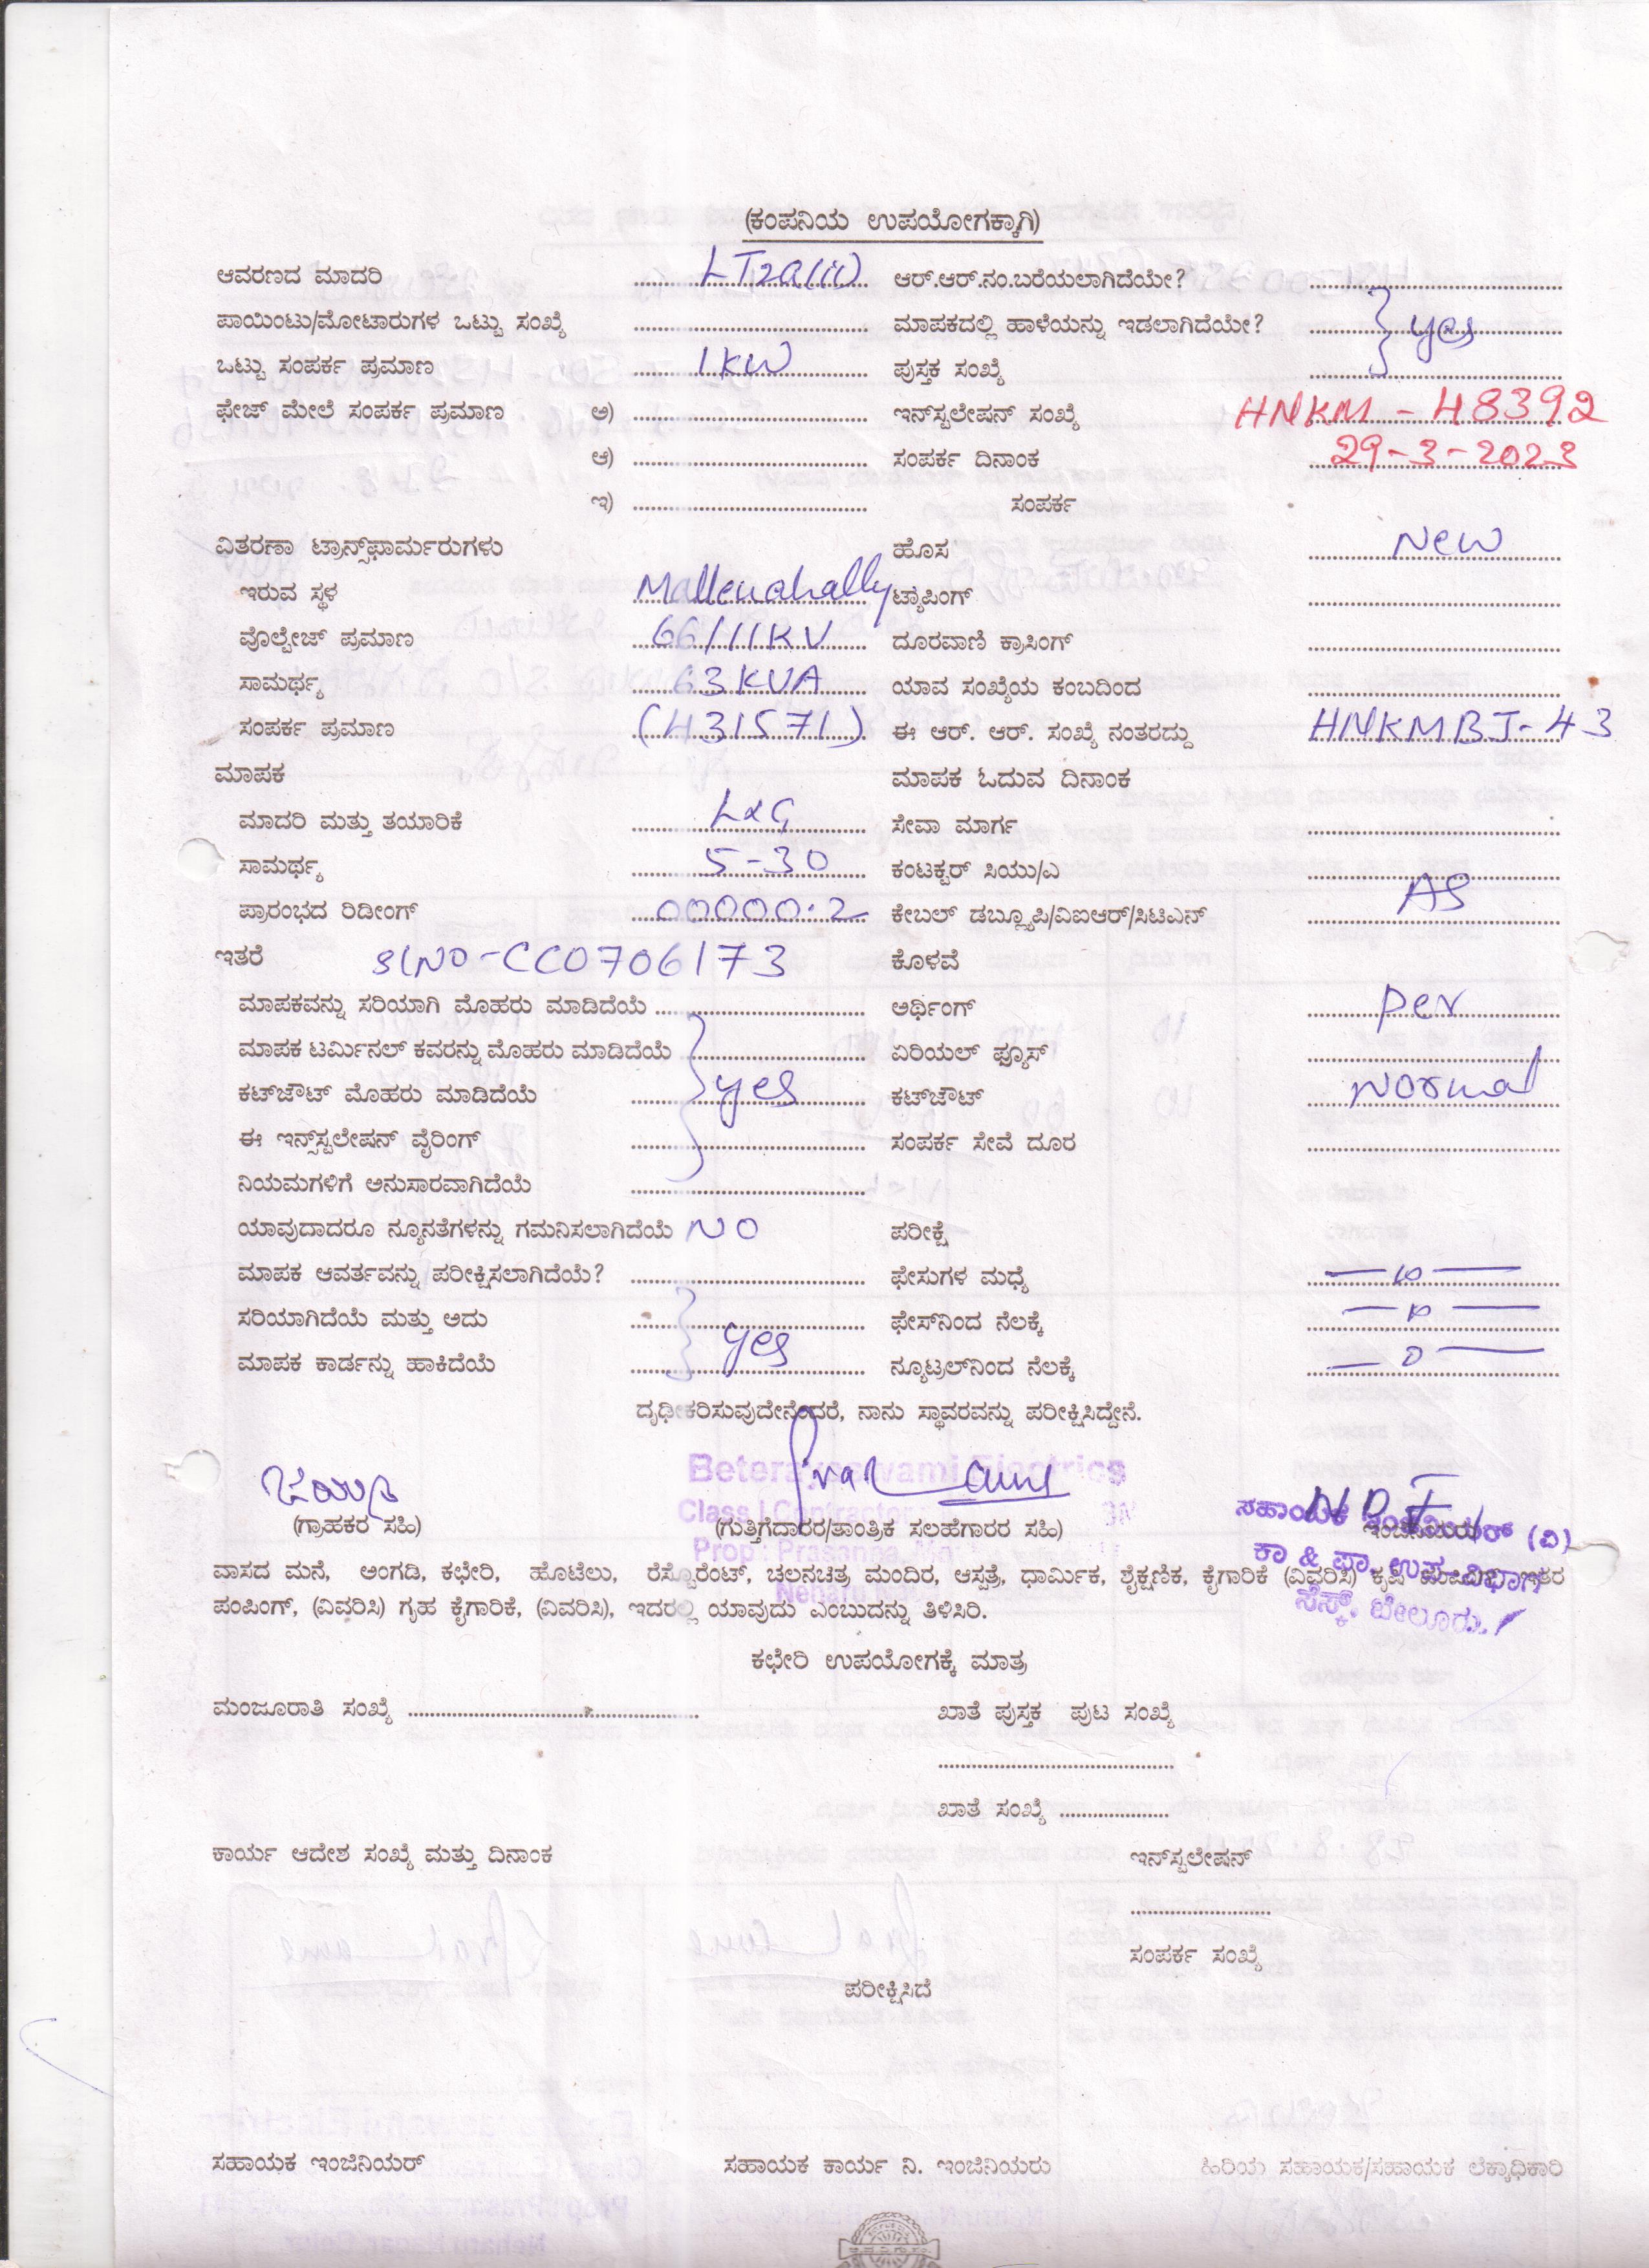 (ಕಂಪನಿಯ ಉಪಯೋಗಕ್ಕಾಗಿ)
ಆವರಣದ ಮಾದರಿ LT2a(iii) ಆರ್.ಆರ್.ನಂ.ಬರೆಯಲಾಗಿದೆಯೇ?
ಪಾಯಿಂಟು/ಮೋಟಾರುಗಳ ಒಟ್ಟು ಸಂಖ್ಯೆ ಮಾಪಕದಲ್ಲಿ ಹಾಳೆಯನ್ನು ಇಡಲಾಗಿದೆಯೇ? yes
ಒಟ್ಟು ಸಂಪರ್ಕ ಪ್ರಮಾಣ 1KW ಪುಸ್ತಕ ಸಂಖ್ಯೆ
ಫೇಜ್ ಮೇಲೆ ಸಂಪರ್ಕ ಪ್ರಮಾಣ ಅ) ಇನ್‌ಸ್ಟಲೇಷನ್ ಸಂಖ್ಯೆ HNKM - 48392
ಆ) ಸಂಪರ್ಕ ದಿನಾಂಕ 29-3-2023
ಇ) ಸಂಪರ್ಕ
ವಿತರಣಾ ಟ್ರಾನ್ಸ್‌ಫಾರ್ಮರುಗಳು ಹೊಸ New
ಇರುವ ಸ್ಥಳ Mallenahally ಟ್ಯಾಪಿಂಗ್
ವೊಲ್ಟೇಜ್ ಪ್ರಮಾಣ 66/11KV ದೂರವಾಣಿ ಕ್ರಾಸಿಂಗ್
ಸಾಮರ್ಥ್ಯ 63KVA ಯಾವ ಸಂಖ್ಯೆಯ ಕಂಬದಿಂದ
ಸಂಪರ್ಕ ಪ್ರಮಾಣ (431571) ಈ ಆರ್. ಆರ್. ಸಂಖ್ಯೆ ನಂತರದ್ದು HNKMBJ-43
ಮಾಪಕ ಮಾಪಕ ಓದುವ ದಿನಾಂಕ
ಮಾದರಿ ಮತ್ತು ತಯಾರಿಕೆ L&G ಸೇವಾ ಮಾರ್ಗ
ಸಾಮರ್ಥ್ಯ 5-30 ಕಂಟಕ್ಟರ್ ಸಿಯು/ಎ
ಪ್ರಾರಂಭದ ರಿಡೀಂಗ್ 00000.2 ಕೇಬಲ್ ಡಬ್ಲ್ಯೂಪಿ/ವಿಐಆರ್/ಸಿಟಿಎನ್ AS
ಇತರೆ SlNO-CC0706173 ಕೊಳವೆ
ಮಾಪಕವನ್ನು ಸರಿಯಾಗಿ ಮೊಹರು ಮಾಡಿದೆಯೆ ಅರ್ಥಿಂಗ್ per
ಮಾಪಕ ಟರ್ಮಿನಲ್ ಕವರನ್ನು ಮೊಹರು ಮಾಡಿದೆಯೆ ಏರಿಯಲ್ ಫ್ಯೂಸ್
ಕಟ್‌ಔಟ್ ಮೊಹರು ಮಾಡಿದೆಯೆ yes ಕಟ್‌ಔಟ್ Normal
ಈ ಇನ್ಸ್‌ಸ್ಟಲೇಷನ್ ವೈರಿಂಗ್ ಸಂಪರ್ಕ ಸೇವೆ ದೂರ
ನಿಯಮಗಳಿಗೆ ಅನುಸಾರವಾಗಿದೆಯೆ
ಯಾವುದಾದರೂ ನ್ಯೂನತೆಗಳನ್ನು ಗಮನಿಸಲಾಗಿದೆಯೆ NO ಪರೀಕ್ಷೆ
ಮಾಪಕ ಆವರ್ತವನ್ನು ಪರೀಕ್ಷಿಸಲಾಗಿದೆಯೆ? ಫೇಸುಗಳ ಮಧ್ಯೆ
ಸರಿಯಾಗಿದೆಯೆ ಮತ್ತು ಅದು ಫೇಸ್‌ನಿಂದ ನೆಲಕ್ಕೆ
ಮಾಪಕ ಕಾರ್ಡನ್ನು ಹಾಕಿದೆಯೆ yes ನ್ಯೂಟ್ರಲ್‌ನಿಂದ ನೆಲಕ್ಕೆ
ದೃಢೀಕರಿಸುವುದೇನೆಂದರೆ, ನಾನು ಸ್ಥಾವರವನ್ನು ಪರೀಕ್ಷಿಸಿದ್ದೇನೆ.
Beterayaswami Electrics
Class I Contractor
Prop : Prasanna
Neharu
(ಗ್ರಾಹಕರ ಸಹಿ) (ಗುತ್ತಿಗೆದಾರರ/ತಾಂತ್ರಿಕ ಸಲಹೆಗಾರರ ಸಹಿ) ಇಂಜಿನಿಯರು
ಸಹಾಯಕ ಇಂಜಿನಿಯರ್ (ವಿ)
ಕಾ & ಪಾ. ಉಪ-ವಿಭಾಗ
ಸೆಸ್ಕ್, ಬೇಲೂರು.
ವಾಸದ ಮನೆ, ಅಂಗಡಿ, ಕಛೇರಿ, ಹೊಟೆಲು, ರೆಸ್ಟೊರೆಂಟ್, ಚಲನಚಿತ್ರ ಮಂದಿರ, ಆಸ್ಪತ್ರೆ, ಧಾರ್ಮಿಕ, ಶೈಕ್ಷಣಿಕ, ಕೈಗಾರಿಕೆ (ವಿವರಿಸಿ) ಕೃಷಿ ಇತರ
ಪಂಪಿಂಗ್, (ವಿವರಿಸಿ) ಗೃಹ ಕೈಗಾರಿಕೆ, (ವಿವರಿಸಿ), ಇದರಲ್ಲಿ ಯಾವುದು ಎಂಬುದನ್ನು ತಿಳಿಸಿರಿ.
ಕಛೇರಿ ಉಪಯೋಗಕ್ಕೆ ಮಾತ್ರ
ಮಂಜೂರಾತಿ ಸಂಖ್ಯೆ ಖಾತೆ ಪುಸ್ತಕ ಪುಟ ಸಂಖ್ಯೆ
ಖಾತೆ ಸಂಖ್ಯೆ
ಕಾರ್ಯ ಆದೇಶ ಸಂಖ್ಯೆ ಮತ್ತು ದಿನಾಂಕ ಇನ್‌ಸ್ಟಲೇಷನ್
ಸಂಪರ್ಕ ಸಂಖ್ಯೆ
ಪರೀಕ್ಷಿಸಿದೆ
ಸಹಾಯಕ ಇಂಜಿನಿಯರ್ ಸಹಾಯಕ ಕಾರ್ಯ ನಿ. ಇಂಜಿನಿಯರು ಹಿರಿಯ ಸಹಾಯಕ/ಸಹಾಯಕ ಲೆಕ್ಕಾಧಿಕಾರಿ